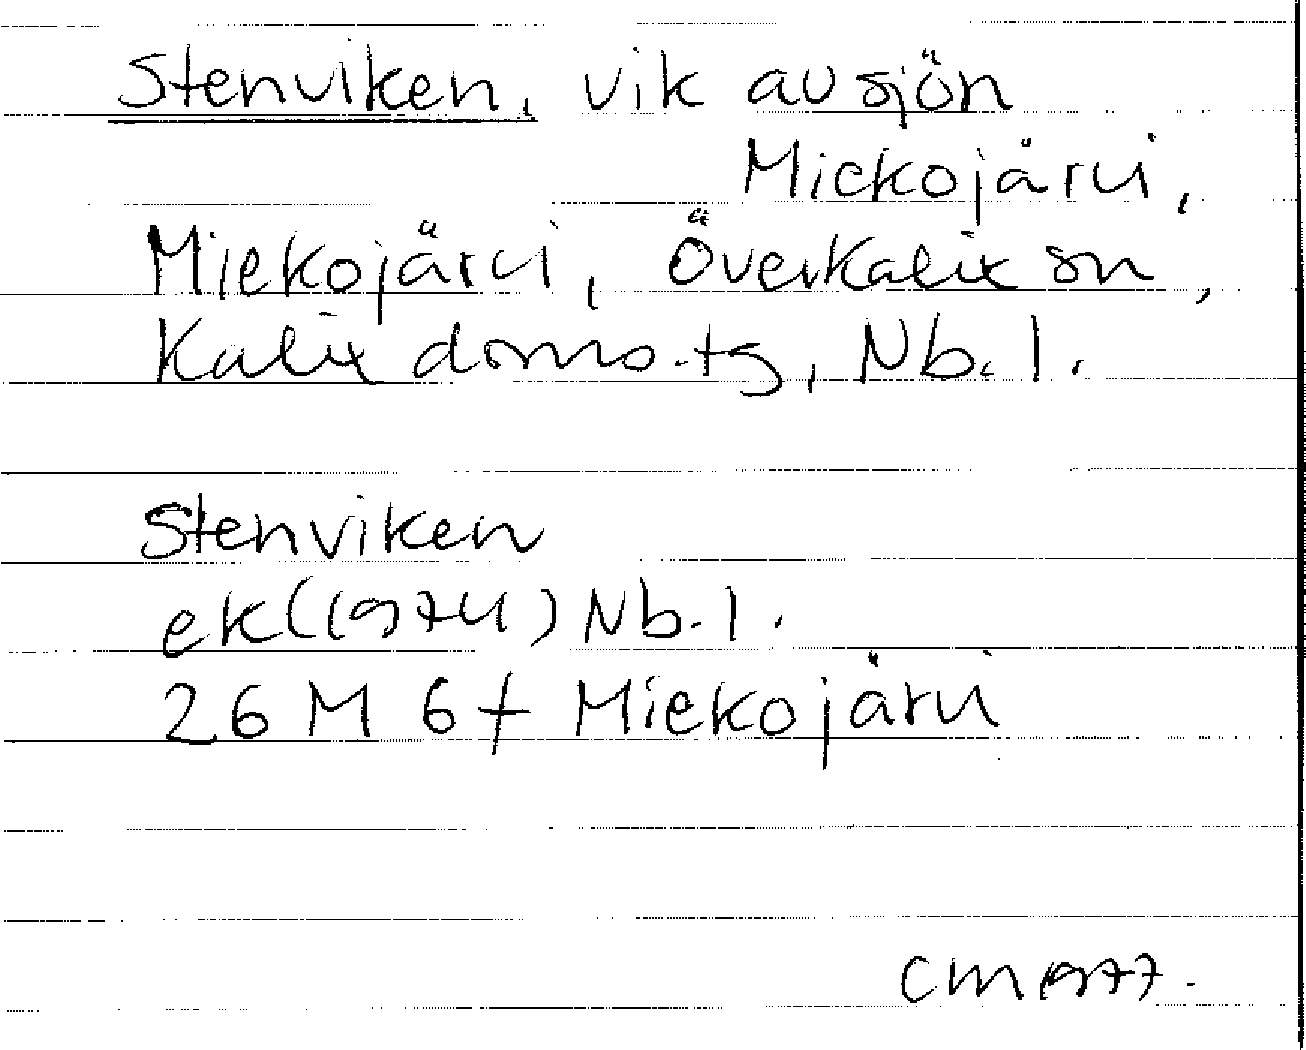 Stenviken, vik av sjön
Miekojärvi,
Miekojärvi, Överkalix sn,
Kalix doms.tg, Nb. l.
Stenviken
ek (1974) Nb. l.
26 M 6f Miekojärvi
CM 1977.